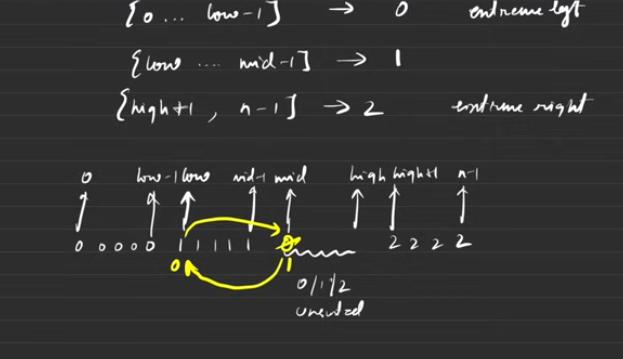 [0 ... low-1] → 0 extreme left
[low .... mid-1] → 1
[high+1 , n-1] → 2 extreme right
0 low-1 low mid-1 mid high high+1 n-1
0 0 0 0 0 1 1 1 1 1 0 2 2 2 2
0 1
0/1/2
unsorted